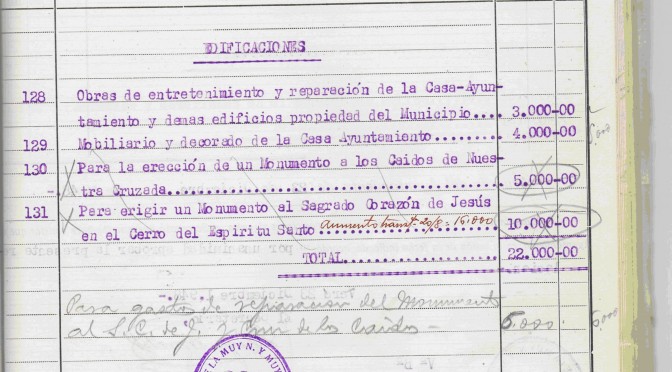 EDIFICACIONES
128 Obras de entretenimiento y reparación de la Casa-Ayun-
tamiento y demas edificios propiedad del Municipio.... 3.000-00
129 Mobiliario y decorado de la Casa Ayuntamiento......... 4.000-00
130 Para la erección de un Monumento a los Caidos de Nues-
tra Cruzada........ 5.000-00
131 Para erigir un Monumento al Sagrado Corazón de Jesús
en el Cerro del Espiritu Santo Aumento transf. 20/8 - 15.000 10.000-00
TOTAL........ 22.000-00
Para gastos de reparacion del Monumento
al S. C. de J. y Cruz de los Caidos - 5.000. 5,000
DE LA MUY N. Y MUY